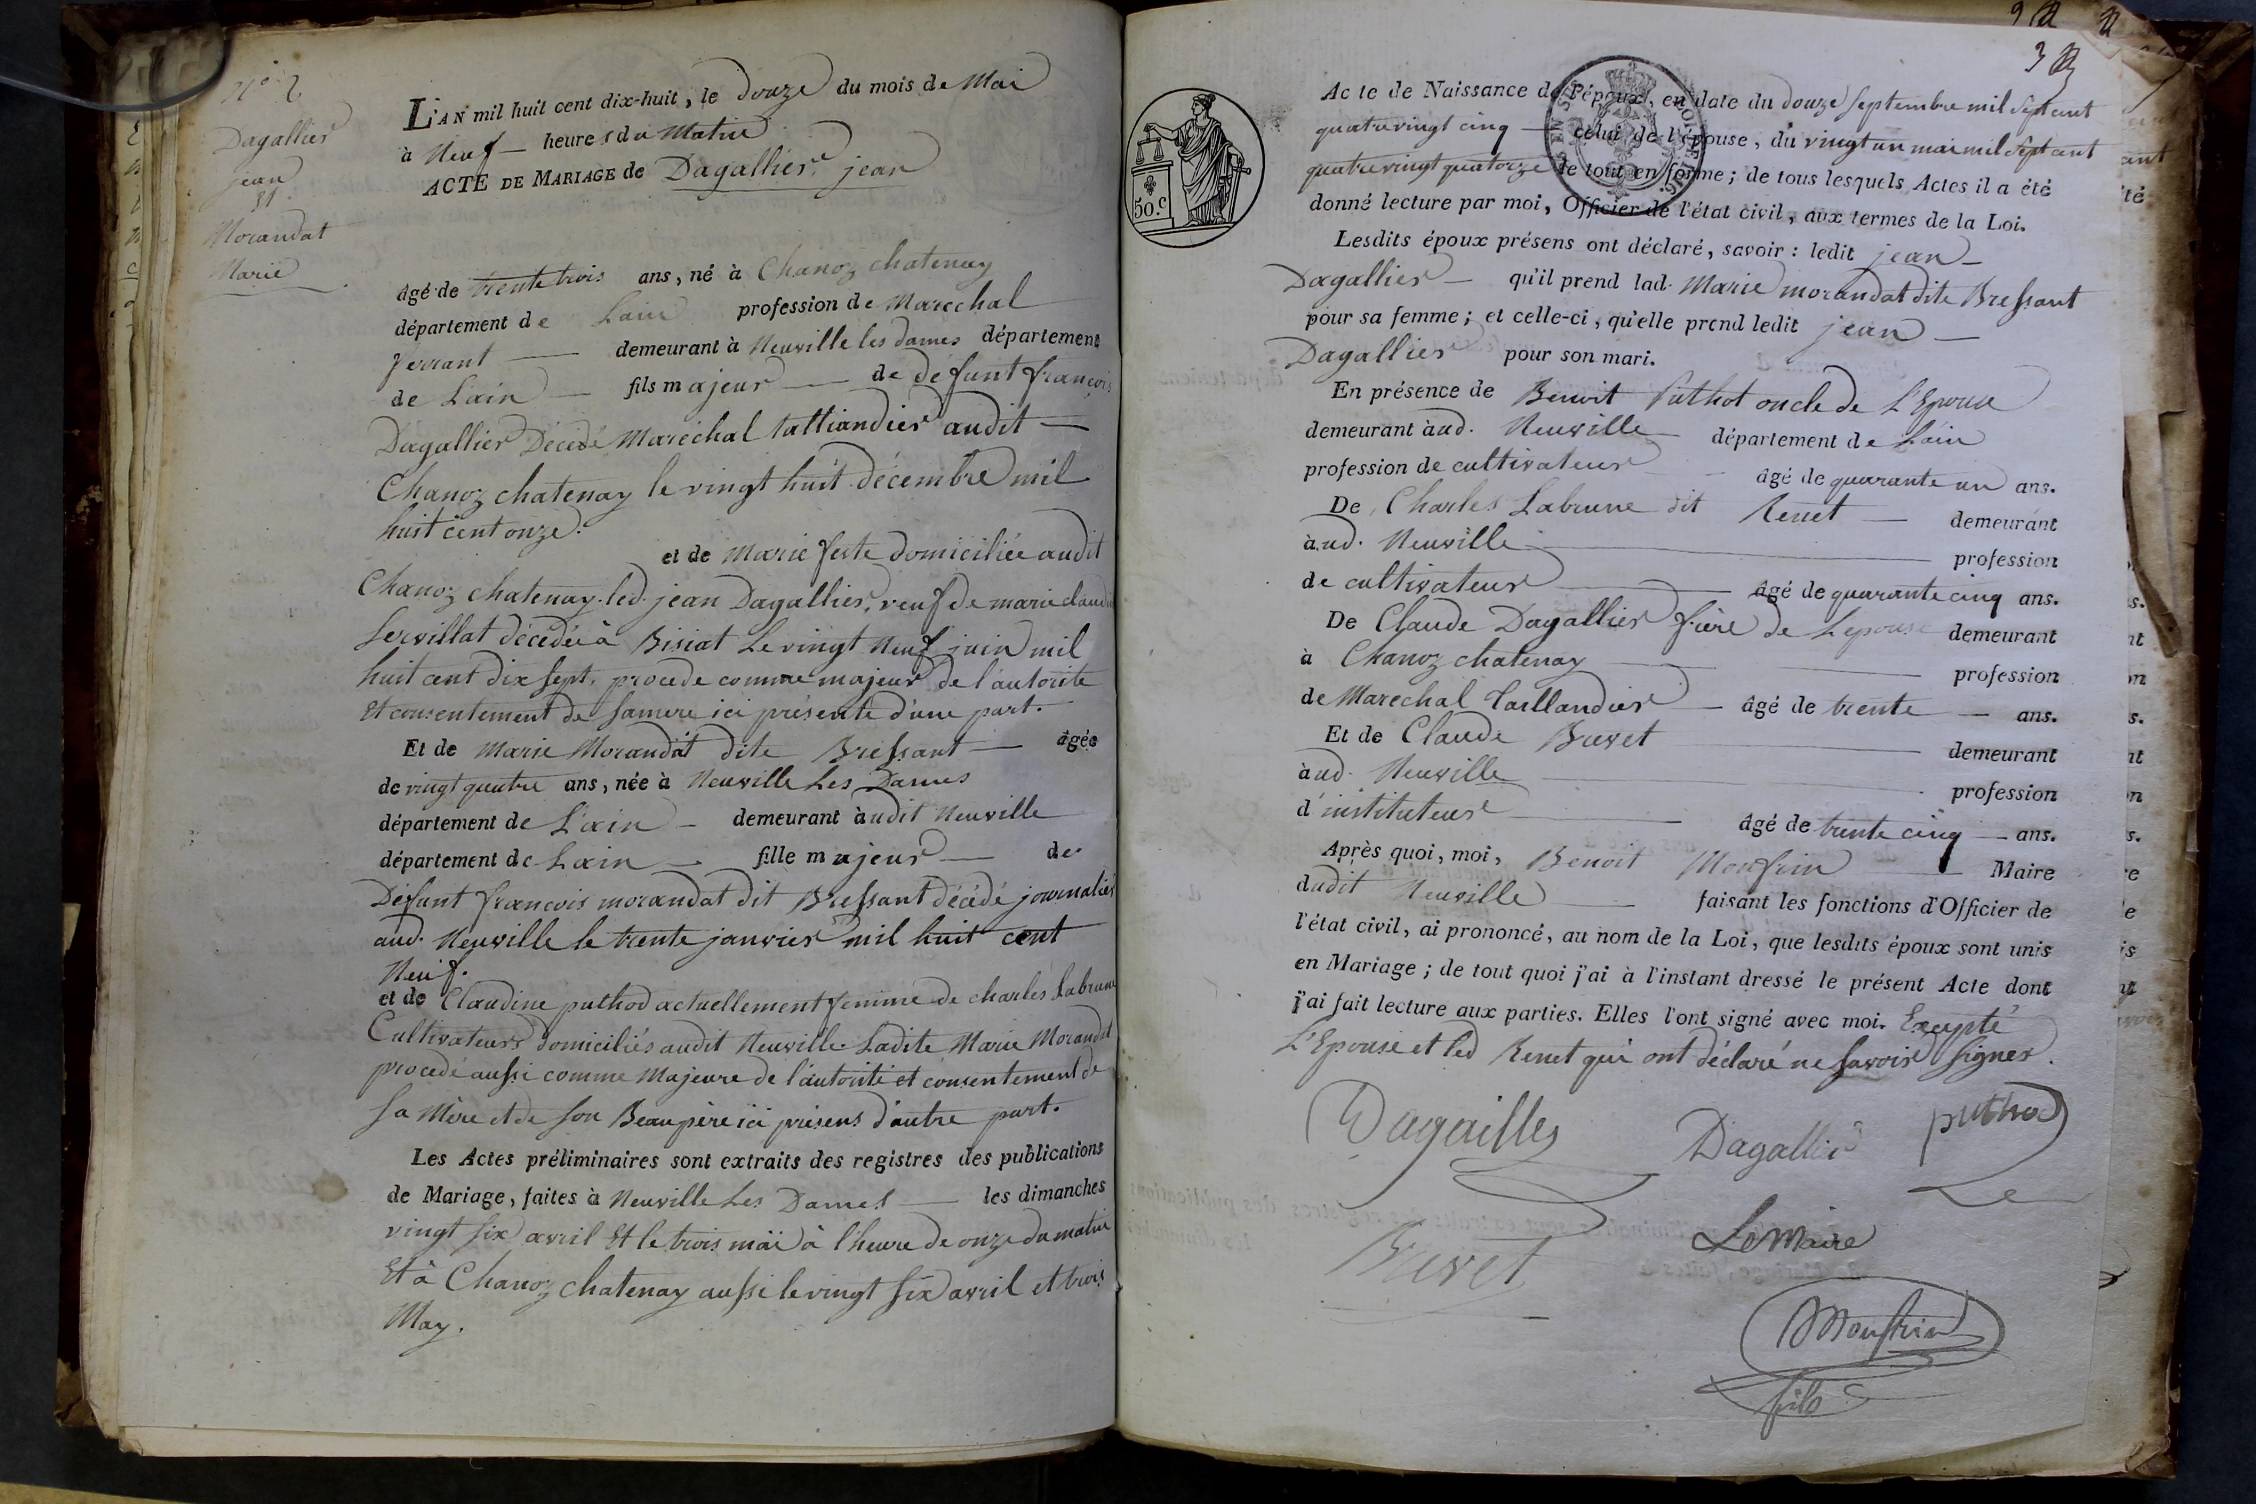 N.º 2
Dagallier
jean
et
Morandat
Marie
L'AN mil huit cent dix-huit, le douze du mois de Mai
à Neuf — heures du Matin
ACTE DE MARIAGE de Dagallier jean
âgé de trente trois ans, né à Chanoz chatenay
département de Lain profession de Marechal
ferrant — demeurant à Neuville les dames département
de Lain — fils majeur — de défunt françois
Dagallier Décédé Maréchal tattiandier audit —
Chanoz chatenay le vingt huit décembre mil
huit cent onze.
et de Marie feste domiciliée audit
Chanoz chatenay. led. jean Dagallier, veuf de marie claudine
Servillat décédée à Bisiat Le vingt Neuf juin mil
huit cent Dix sept, procede comme majeur de l'autorité
Et consentement de samere ici présente d'une part.
Et de Marie Morandat dite Bressant — âgée
de vingt quatre ans, née à Neuville Les Dames
département de L'ain — demeurant audit Neuville
département de Lain — fille majeur — de
Défunt francois morandat dit Bressant décédé journalier
aud. Neuville le trente janvier mil huit cent
Neuf.
et de Claudine puthod actuellement femme de charles Labrune
Cultivateurs domiciliés audit Neuville. Ladite Marie Morandat
procedé aussi comme Majeure de l'autorité et consentement de
Sa Mère et de son Beaupère ici présens d'autre part.
Les Actes préliminaires sont extraits des registres des publications
de Mariage, faites à Neuville Les Dames — les dimanches
vingt six avril Et le trois mai à l'heure de onze du matin
Et à Chanoz chatenay aussi le vingt six avril et trois
May.
50.c
Acte de Naissance de l'époux, en date du douze septembre mil sept cent
quatrevingt cinq — celui de l'épouse, du vingt un mai mil sept cent
quatrevingt quatorze le tout en forme; de tous lesquels Actes il a été
donné lecture par moi, Officier de l'état civil, aux termes de la Loi.
Lesdits époux présens ont déclaré, savoir : ledit jean —
Dagallier — qu'il prend lad. Marie morandat dite Bressant
pour sa femme; et celle-ci, qu'elle prend ledit jean —
Dagallier pour son mari.
En présence de Benoit Puthot oncle de L'Epouse
demeurant àud. Neuville département de Lain
profession de cultivateur âgé de quarante un ans.
De Charles Labrune dit Renet — demeurant
àud. Neuville — profession
de cultivateur — âgé de quarante cinq ans.
De Claude Dagallier frère de Lepouse demeurant
à Chanoz chatenay — profession
de Marechal Taillandier — âgé de trente — ans.
Et de Claude Buvet — demeurant
àud. Neuville — profession
d'instituteur — âgé de trente cinq — ans.
Après quoi, moi, Benoit Monfrin — Maire
dudit Neuville — faisant les fonctions d'Officier de
l'état civil, ai prononcé, au nom de la Loi, que lesdits époux sont unis
en Mariage; de tout quoi j'ai à l'instant dressé le présent Acte dont
j'ai fait lecture aux parties. Elles l'ont signé avec moi. Excepté
L'Epouse et led Renet qui ont déclaré ne savoir signer.
Dagailles Dagallier puthod
Buvet Le Maire
Monfrin
fils